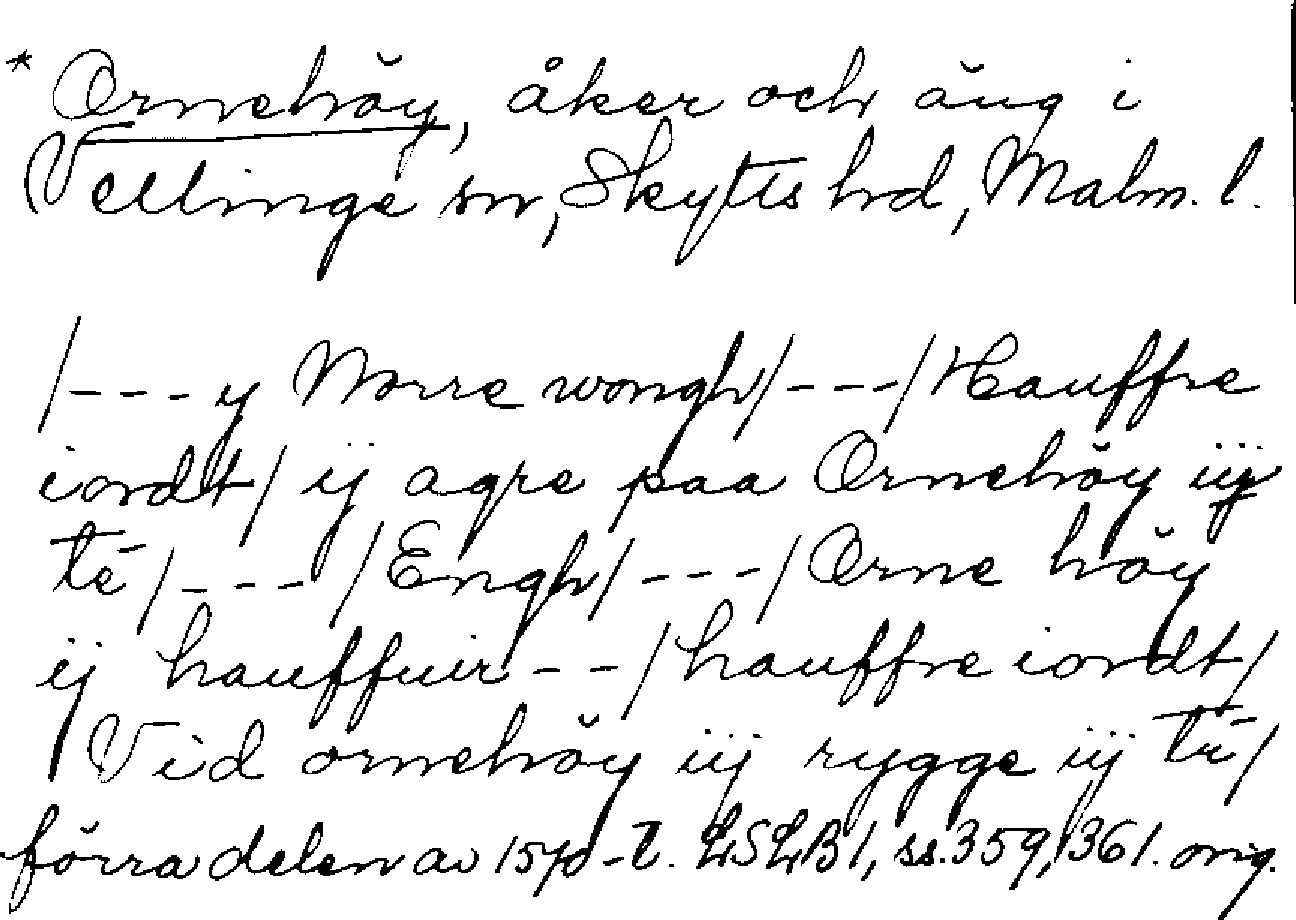 * Ornehöy, åker och äng i
Vellinge sn, Skytts hd, Malm. l.
/---y Norre wongh/---/Hauffre
iordt/ ij agre paa Ornehöy iij
té/---/Engh/---/Orne höy
ij hauffuir--/hauffre iordt/
Vid ornehöy iij rygge iij té/
förra delen av 1570-t. LSLB1, ss.359, 361. orig.